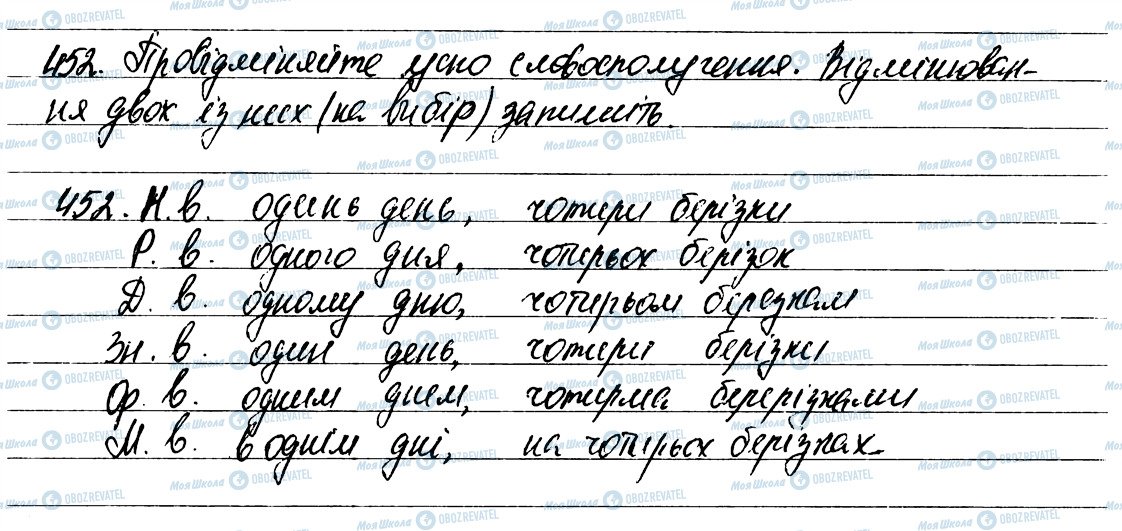 452. Провідміняйте усно словосполучення. Відмінюван-
ня двох із них (на вибір) запишіть.
452. Н. в. одинь день, чотири берізки
Р. в. одного дня, чотирьох берізок
Д. в. одному дню, чотирьом берізкам
Зн. в. один день, чотири берізки
Ор. в. одним днем, чотирма беререзками
М. в. в однім дні, на чотирьох берізках.